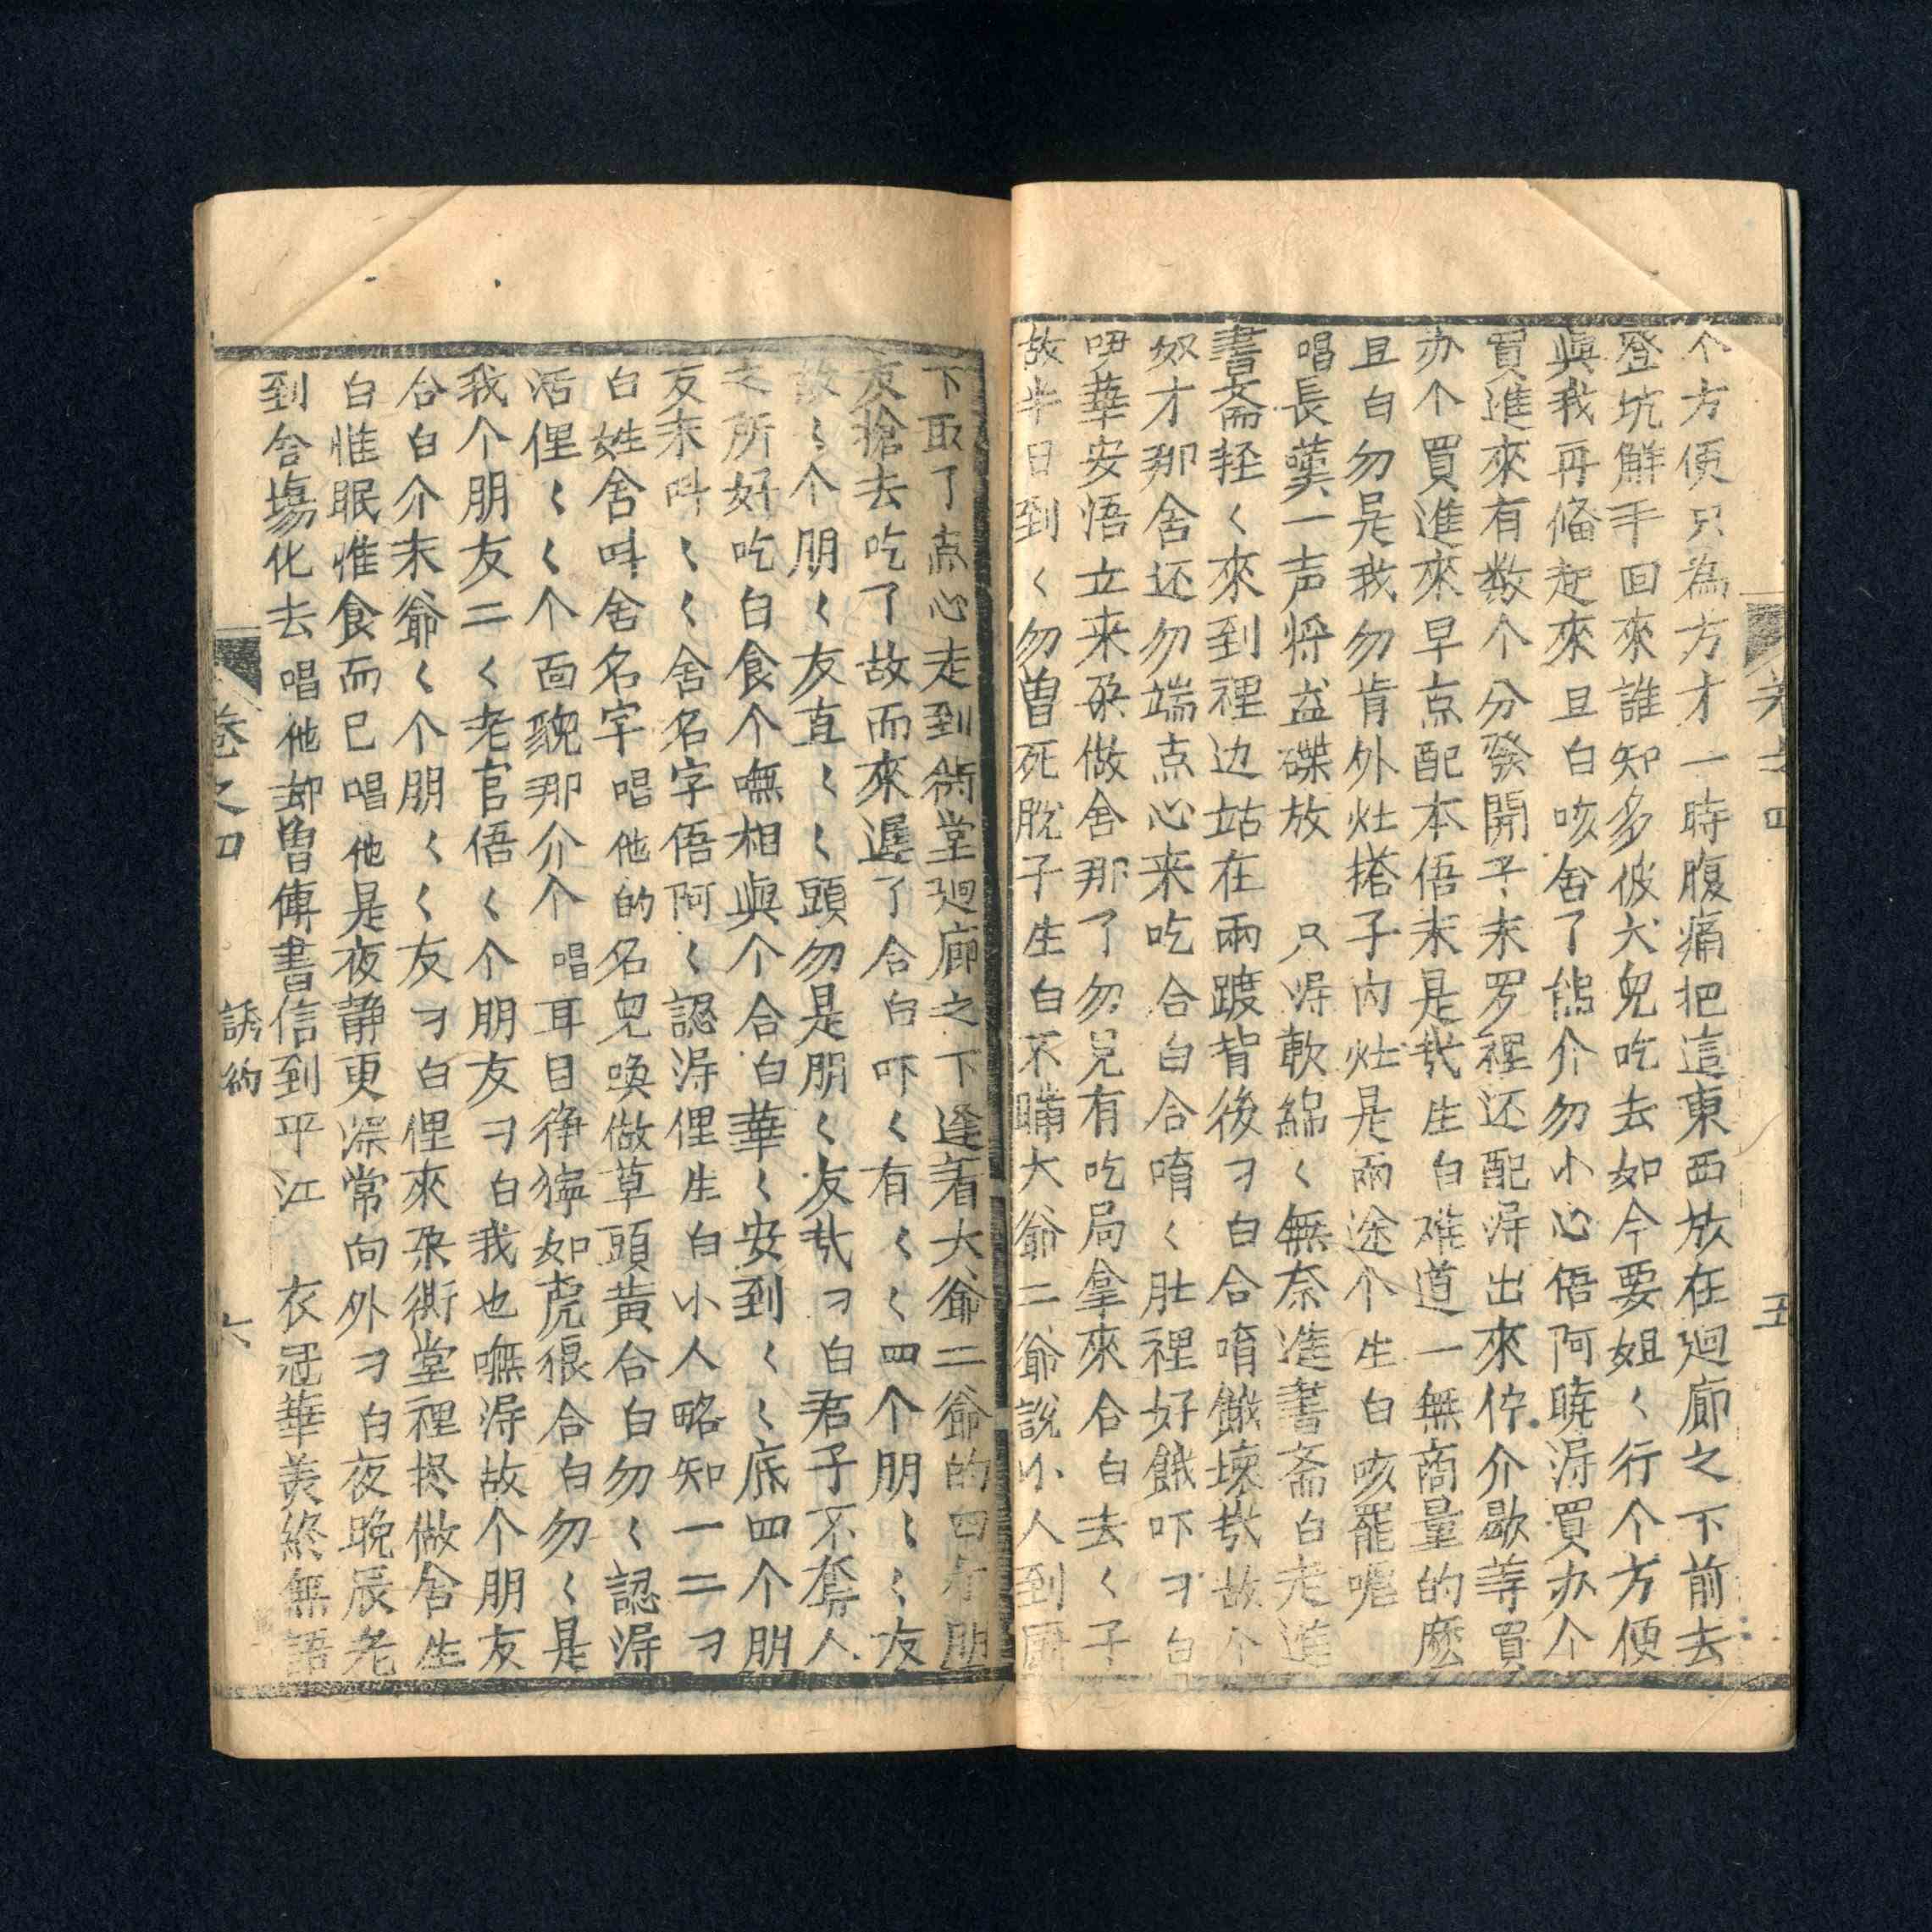 个方便只為方才一時腹痛把這東西放在迴廊之下前去
登坑觧手回來誰知多彼犬兒吃去如今要姐〱行个方便
與我再俻起來且白咳舍了能介勿小心俉阿曉淂買办个
買進來有数个分發開子末罗裡还配淂出來佇介歇等買
办个買進來早点配本俉末是㢤生白难道一無商量的麼
且白勿是我勿肯外灶搭子內灶是兩途个生白咳罷嗯
唱長嘆一声将盆碟放　只淂軟綿〱無奈進書斋白走進
書斋轻〱來到裡边站在兩踱背後丑白合唷餓壊㢤故个
奴才那舍还勿端点心来吃合白合唷〱肚裡好餓吓丑白
咿華安俉立来朶做舍那了勿見有吃局拿來合白去〱子
故半日到〱勿曽死脫子生白不瞞大爺二爺説小人到厨
卷之四　五
下取了点心走到衖堂廻廊之下逢着大爺二爺的四个朋
友搶去吃了故而來遲了合白吓〱有〱〱四个朋〱〱友
故〱个朋〱友直〱〱頭勿是朋〱友㢤丑白君子不奪人
之所好吃白食个嘸相與个合白華〱安到〱〱底四个朋
友末呌〱〱舍名字俉阿〱認淂俚生白小人略知一二丑
白姓舍呌舍名字唱他的名兒喚做草頭黄合白勿〱認淂
活俚〱〱个面貌那介个　唱耳目狰獰如虎狼合白勿〱是
我个朋友二〱老官俉〱个朋友丑白我也嘸淂故个朋友
合白介末爺〱个朋〱〱友丑白俚來朶衖堂裡捴做舍生
白惟眠惟食而已唱他是夜静更深常向外丑白夜晚辰光
到舍塲化去唱他却曽傳書信到平江　衣冠華羙終無語
卷之四　誘約　六